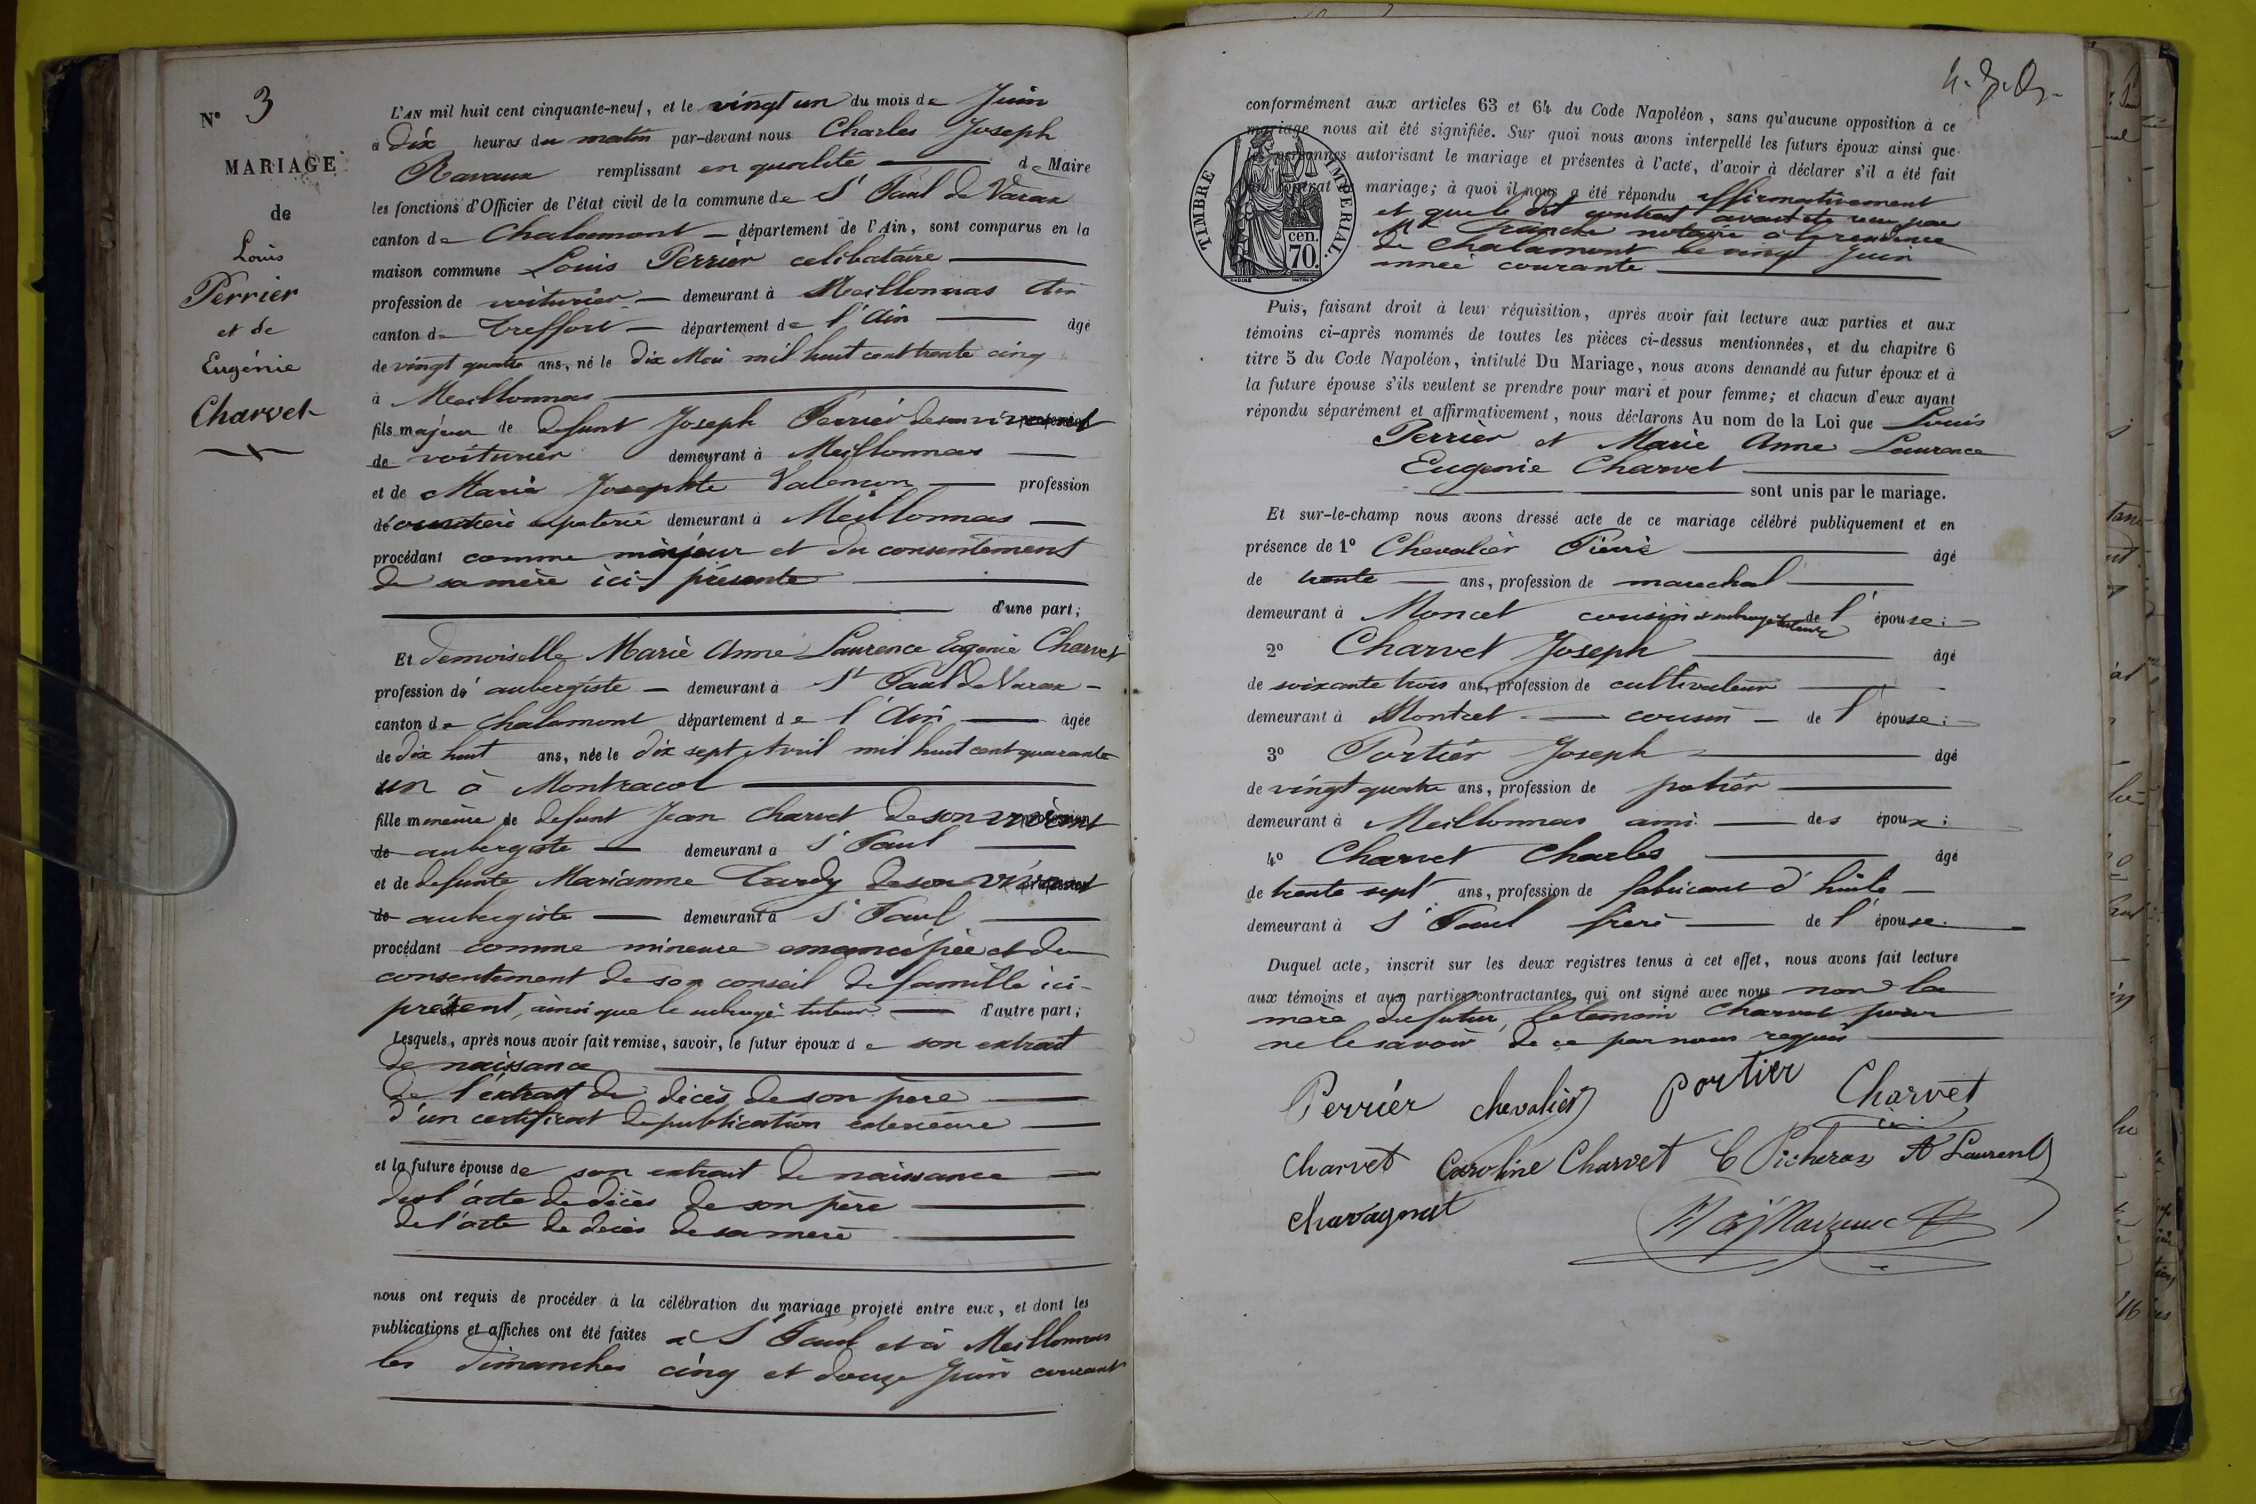 N° 3
MARIAGE
de
Louis
Perrier
et de
Eugénie
Charvet
L'AN mil huit cent cinquante-neuf, et le vingt un du mois de Juin
à dix heures du matin par-devant nous Charles Joseph
Ravaux remplissant en qualité de Maire
les fonctions d'Officier de l'état civil de la commune de St Paul de Varax
canton de Chalamont département de l'Ain, sont comparus en la
maison commune Louis Perrier celibataire
profession de voiturier demeurant à Meillonnas
canton de Treffort département de l'Ain âgé
de vingt quatre ans, né le dix Mai mil huit cent trente cinq
à Meillonnas
fils majeur de defunt Joseph Perrier de son vivant
de voiturier demeurant à Meillonnas
et de Marie Josephte Valencon profession
de en poterie demeurant à Meillonnas
procédant comme majeur et du consentement
de sa mère ici présente
d'une part;
Et demoiselle Marie Anne Laurence Eugénie Charvet
profession d' aubergiste demeurant à St Paul de Varax
canton de Chalamont département de l'Ain âgée
de dix huit ans, née le dix sept Avril mil huit cent quarante
un à Montracol
fille mineure de defunt Jean Charvet de son vivant
de aubergiste demeurant à St Paul
et de defunte Marianne Tardy de son vivant
de aubergiste demeurant à St Paul
procédant comme mineure emancipée et du
consentement de son conseil de famille ici-
présent, ainsi que le subrogé tuteur d'autre part;
Lesquels, après nous avoir fait remise, savoir, le futur époux de son extrait
de naissance
de l'extrait de décès de son père
d'un certificat de publication exterieure
et la future épouse de son extrait de naissance
de l'acte de décès de son père
de l'acte de décès de sa mère
nous ont requis de procéder à la célébration du mariage projeté entre eux, et dont les
publications et affiches ont été faites à St Paul et à Meillonnas
les dimanches cinq et douze Juin courant
conformément aux articles 63 et 64 du Code Napoléon, sans qu'aucune opposition à ce
mariage nous ait été signifiée. Sur quoi nous avons interpellé les futurs époux ainsi que
personnes autorisant le mariage et présentes à l'acte, d'avoir à déclarer s'il a été fait
contrat mariage; à quoi il nous a été répondu affirmativement
et que le dit contrat avait été reçu par
Me notaire à la residence
de Chalamont le vingt Juin
année courante
TIMBRE IMPERIAL.
70 cen.
Puis, faisant droit à leur réquisition, après avoir fait lecture aux parties et aux
témoins ci-après nommés de toutes les pièces ci-dessus mentionnées, et du chapitre 6
titre 5 du Code Napoléon, intitulé Du Mariage, nous avons demandé au futur époux et à
la future épouse s'ils veulent se prendre pour mari et pour femme; et chacun d'eux ayant
répondu séparément et affirmativement, nous déclarons Au nom de la Loi que Louis
Perrier et Marie Anne Laurence
Eugenie Charvet
sont unis par le mariage.
Et sur-le-champ nous avons dressé acte de ce mariage célébré publiquement et en
présence de 1° Chevalier Pierre âgé
de trente ans, profession de marechal
demeurant à Moncet cousin et subrogé tuteur de l'épouse;
2° Charvet Joseph âgé
de soixante trois ans, profession de cultivateur
demeurant à Montcet cousin de l'épouse;
3° Portier Joseph âgé
de vingt quatre ans, profession de potier
demeurant à Meillonnas ami des époux;
4° Charvet Charles âgé
de trente sept ans, profession de fabricant d'huile
demeurant à St Paul frère de l'épouse.
Duquel acte, inscrit sur les deux registres tenus à cet effet, nous avons fait lecture
aux témoins et aux parties contractantes qui ont signé avec nous non la
mere du futur, le temoin Charvet pour
ne le savoir de ce par nous requis
Perrier chevalier portier Charvet
charvet Caroline Charvet C Picheraz A Laurent
chavagnat